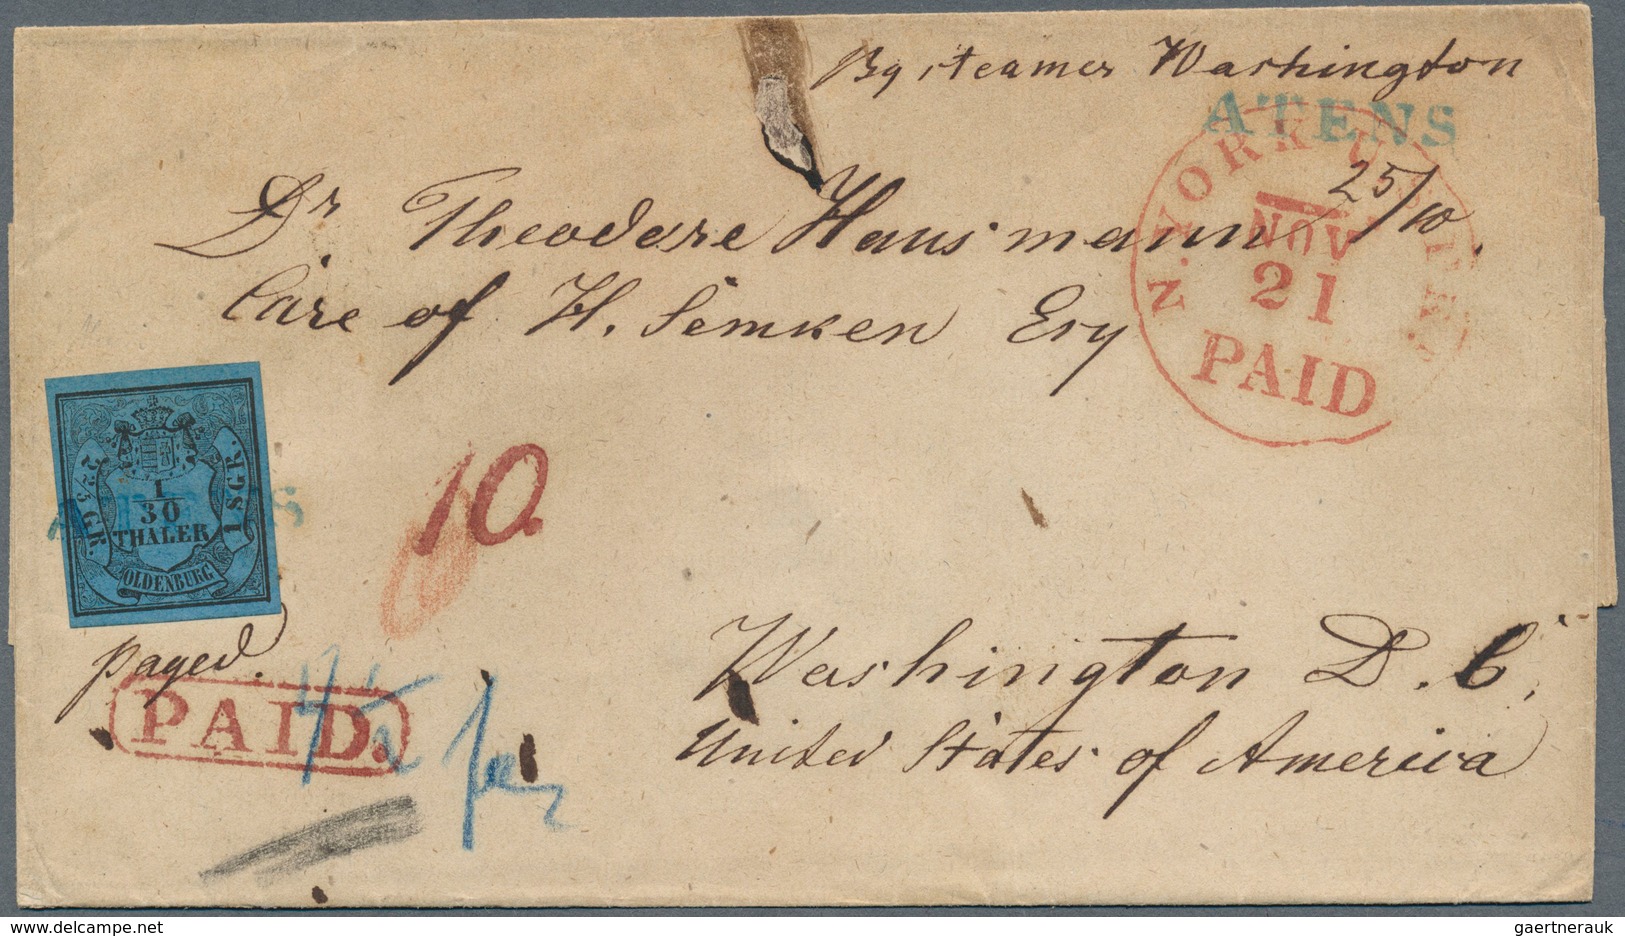 By steamer Washington
ATENS
25/10
N. YORK U.S. PKT
NOV
21
PAID
Dr Theodore Hausmann
Care of H. Semken Esq
2 2/3 GR.
1 SGR.
1
30
THALER
OLDENBURG
ATENS
10
payed.
PAID.
Washington D. C.
United States of America
www.delcampe.net
gaertnerauk